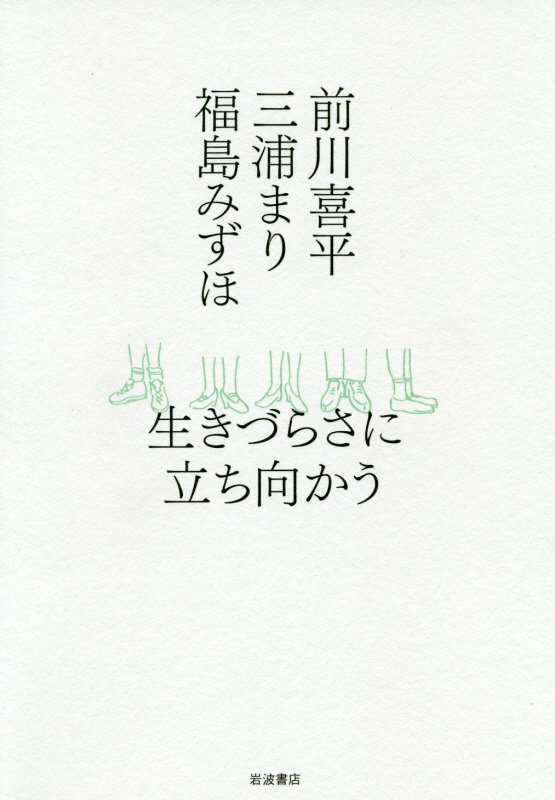 前川喜平
三浦まり
福島みずほ
生きづらさに
立ち向かう
岩波書店